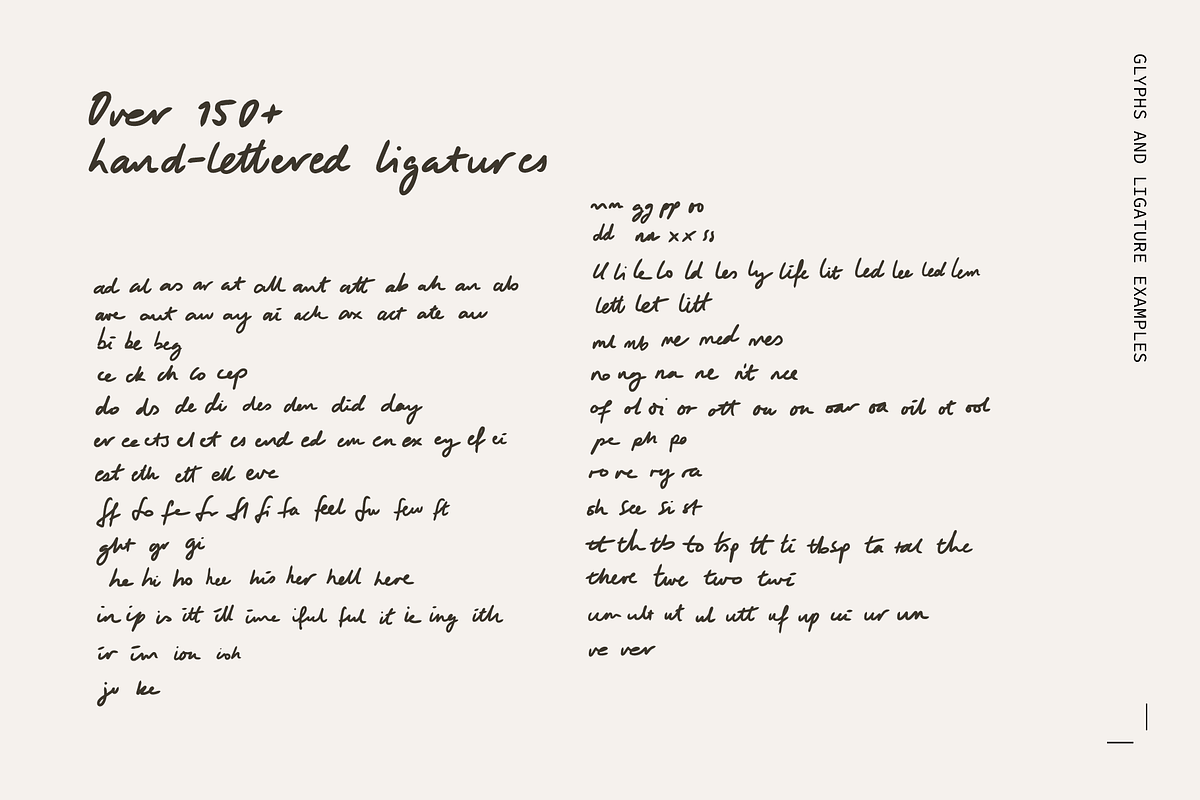 Over 150+
hand-lettered ligatures
ad al as ar at all ant att ab ah an alo
are out aw ay ai ack ax act ate au
bi be beg
ce ck ch co cep
do ds de di des den did day
er ee cts el et es end ed em en ex ey ef ei
est eth ett ell eve
ff fo fe fr fl fi fa feel fu few ft
ght gr gi
he hi ho hee his her hell here
in ip is itt ill ime iful ful it ie ing ith
ir im ion ish
ju ke
mm gg pp oo
dd na xx ss
ll li le lo ld les ly life lit led lee led lem
lett let litt
ml mb me med mes
no ng na ne n't nee
of ol oi or ott ou on oar oa oil ot ool
pe ph po
ro re ry ra
sh see si st
tt th tb to tsp tt ti tbsp ta tal the
there twe two twi
um ult ut ul utt uf up ui ur un
ve ver
GLYPHS AND LIGATURE EXAMPLES